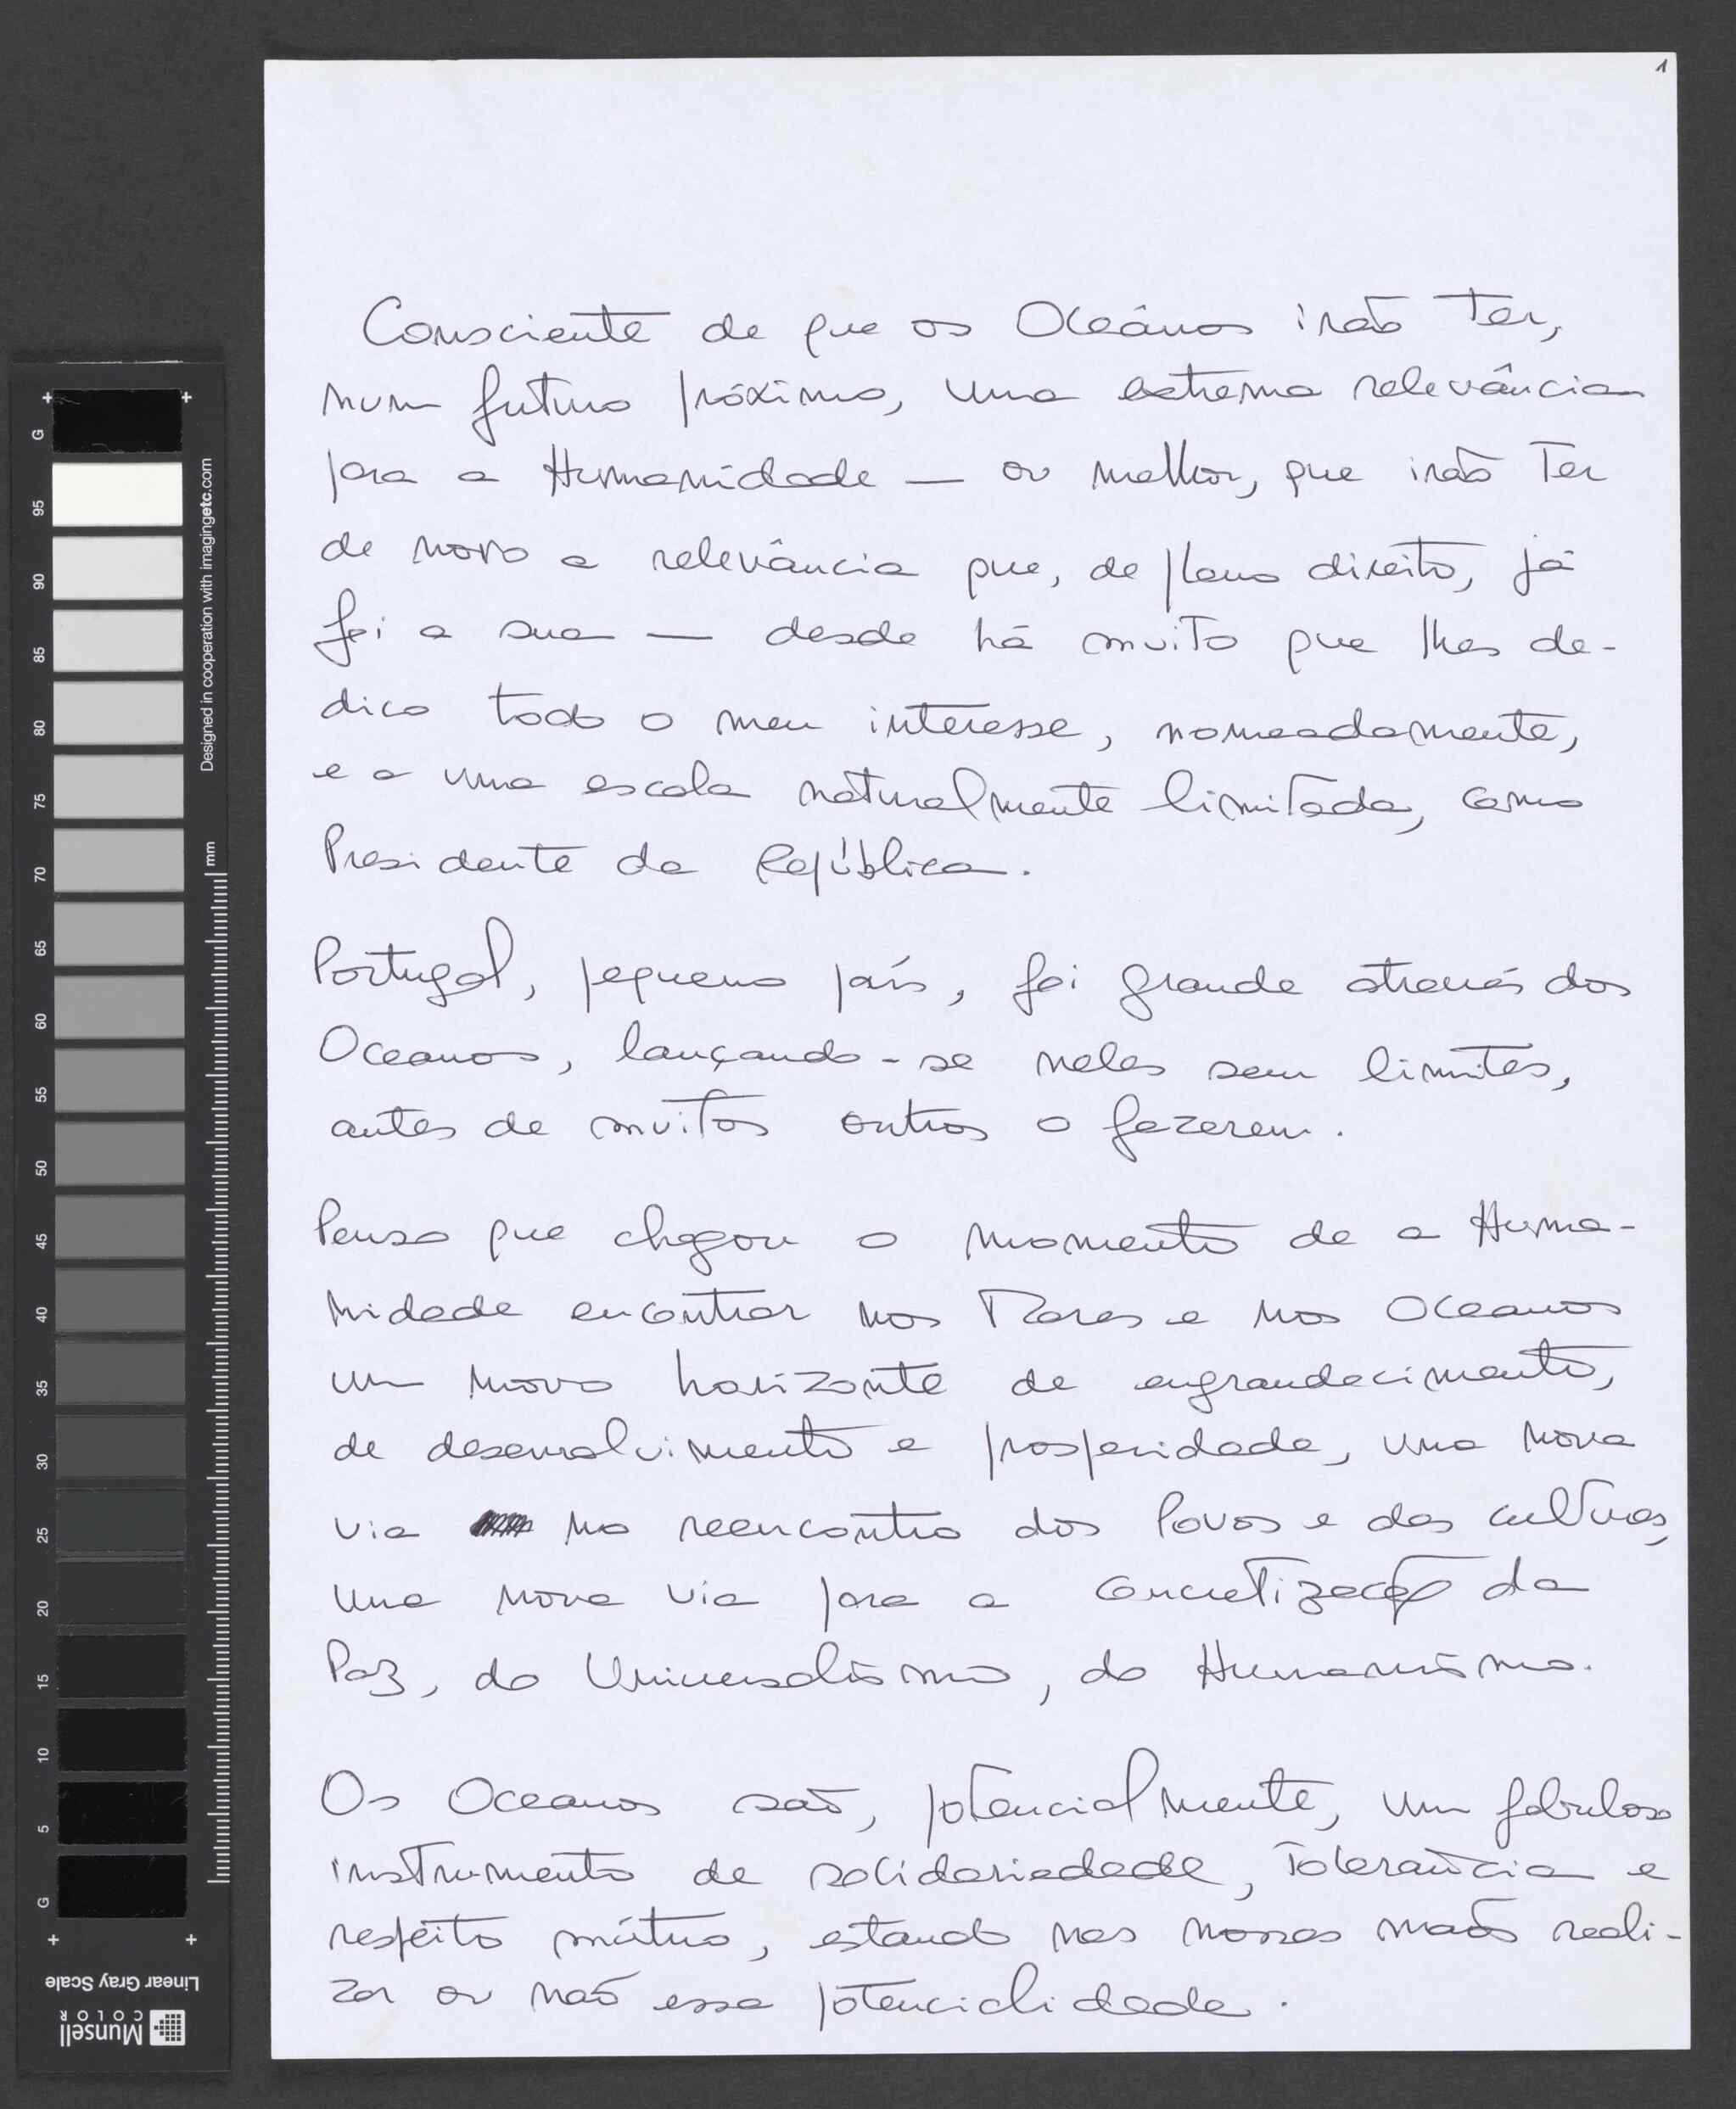 1
Consciente de que os Oceânos irão ter,
num futuro próximo, uma extrema relevância
para a Humanidade — ou melhor, que irão ter
de novo a relevância que, de pleno direito, já
foi a sua — desde há muito que lhes de-
dico todo o meu interesse, nomeadamente,
e a uma escala naturalmente limitada, como
Presidente da República.
Portugal, pequeno país, foi grande através dos
Oceanos, lançando-se neles sem limites,
antes de muitos outros o fazerem.
Penso que chegou o momento de a Huma-
nidade encontrar nos Mares e nos Oceanos
um novo horizonte de engrandecimento,
de desenvolvimento e prosperidade, uma nova
via no reencontro dos Povos e das culturas,
uma nova via para a concretização da
Paz, do Universalismo, do Humanismo.
Os Oceanos são, potencialmente, um fabuloso
instrumento de solidariedade, tolerância e
respeito mútuo, estando nas nossas mãos reali-
zar ou não essa potencialidade.
G 95 90 85 80 75 70 65 60 55 50 45 40 35 30 25 20 15 10 5 G
Designed in cooperation with imagingetc.com
mm
Linear Gray Scale
Munsell
COLOR